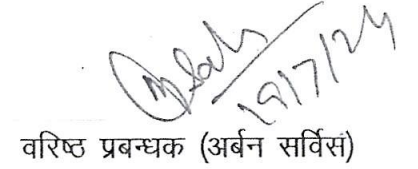 19/7/24
वरिष्ठ प्रबन्धक (अर्बन सर्विस)